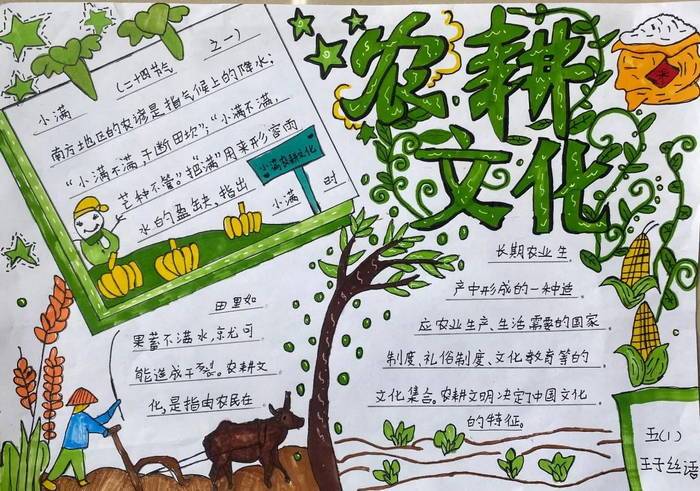 农耕
文化
小满
(二十四节气
之一)
南方地区的农谚是指气候上的降水;
“小满不满,干断田坎”;“小满不满,
芒种不管。”把“满”用来形容雨
水的盈缺,指出
小满
时
小满农耕文化
田里如
果蓄不满水,就可
能造成干裂。农耕文
化,是指由农民在
长期农业生
产中形成的一种适
应农业生产、生活需要的国家
制度、礼俗制度、文化教育等的
文化集合。农耕文明决定了中国文化
的特征。
米
五(1)
王子丝语